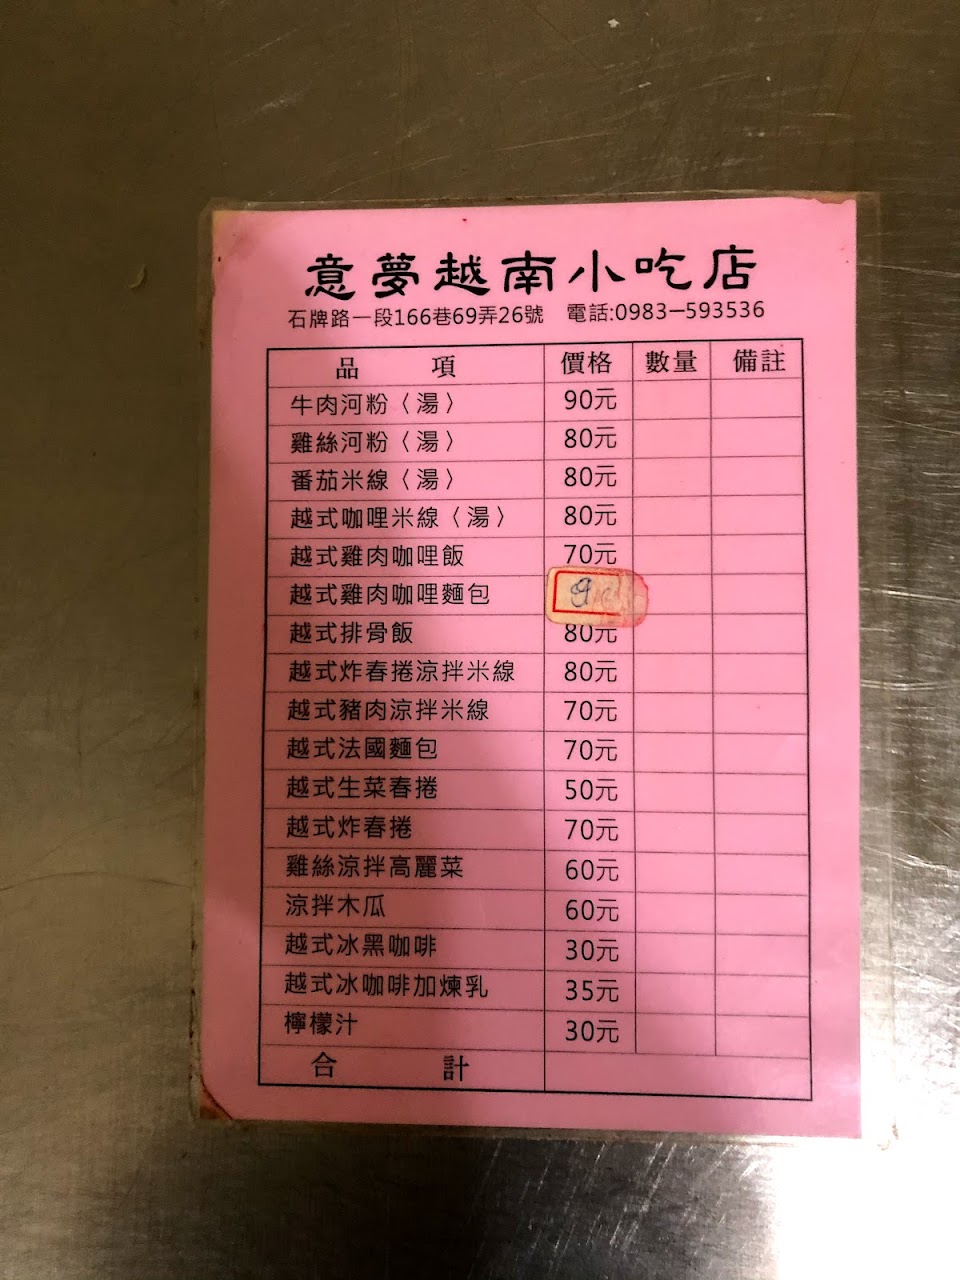 意夢越南小吃店
石牌路一段166巷69弄26號 電話:0983-593536
品項 價格 數量 備註
牛肉河粉〈湯〉 90元
雞絲河粉〈湯〉 80元
番茄米線〈湯〉 80元
越式咖哩米線〈湯〉 80元
越式雞肉咖哩飯 70元
越式雞肉咖哩麵包
越式排骨飯 80元
越式炸春捲涼拌米線 80元
越式豬肉涼拌米線 70元
越式法國麵包 70元
越式生菜春捲 50元
越式炸春捲 70元
雞絲涼拌高麗菜 60元
涼拌木瓜 60元
越式冰黑咖啡 30元
越式冰咖啡加煉乳 35元
檸檬汁 30元
合計